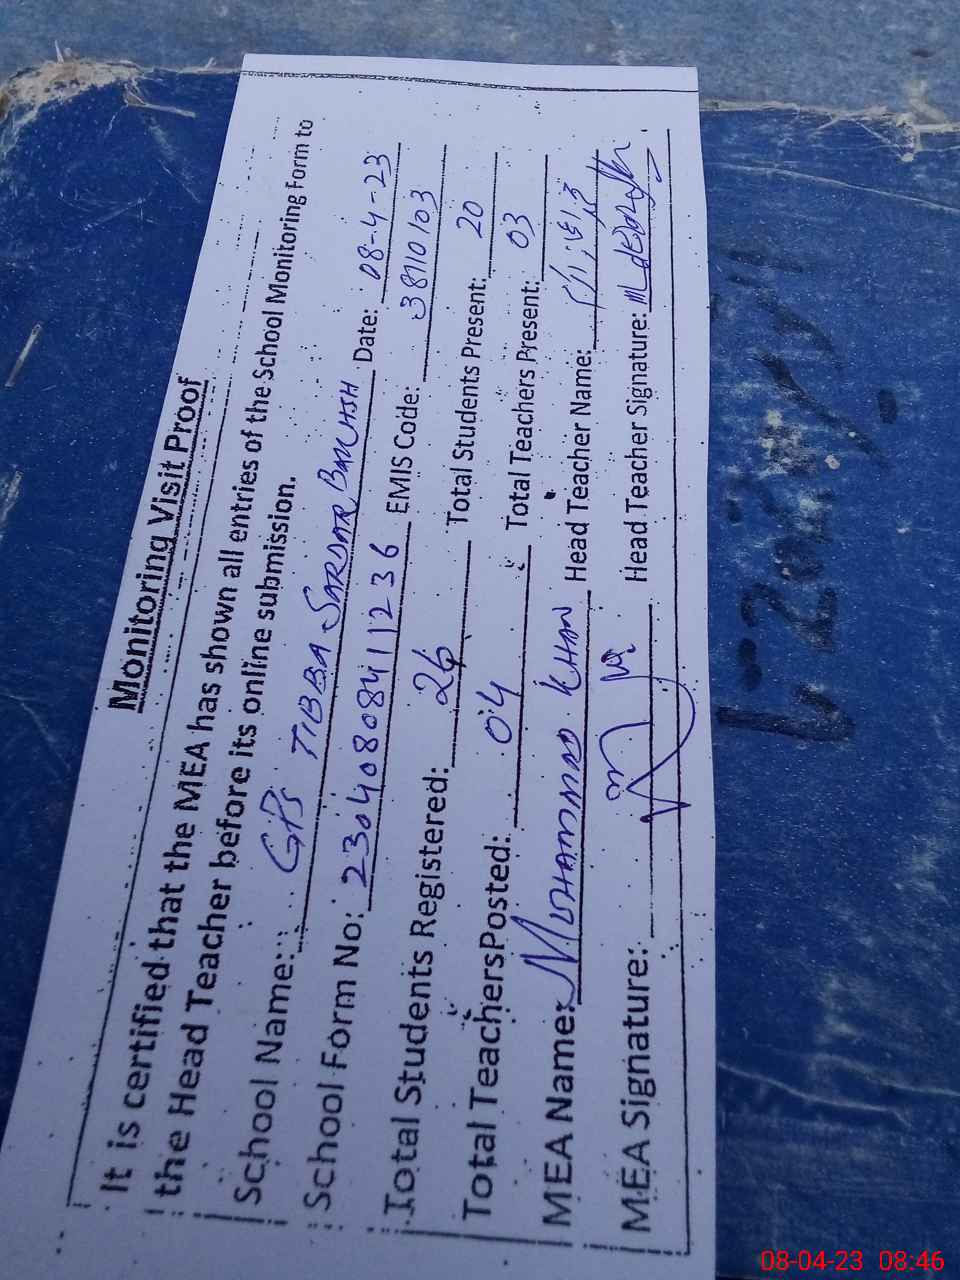 Monitoring Visit Proof
It is certified that the MEA has shown all entries of the School Monitoring Form to
the Head Teacher before its online submission.
School Name: GPS TIBBA SARDAR BAKHSH Date: 08-4-23
School Form No: 230408084111236 EMIS Code: 38110103
Total Students Registered: 26 Total Students Present: 20
Total Teachers Posted: 04 Total Teachers Present: 03
MEA Name: MUHAMMAD KHAN Head Teacher Name:
MEA Signature: Head Teacher Signature:
08-04-23 08:46